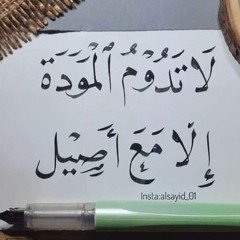 لَا تَدُوْمُ ٱلْمَوَدَةَ
إِلَّا مَعَ أَصِيْل
Insta:alsayid_01